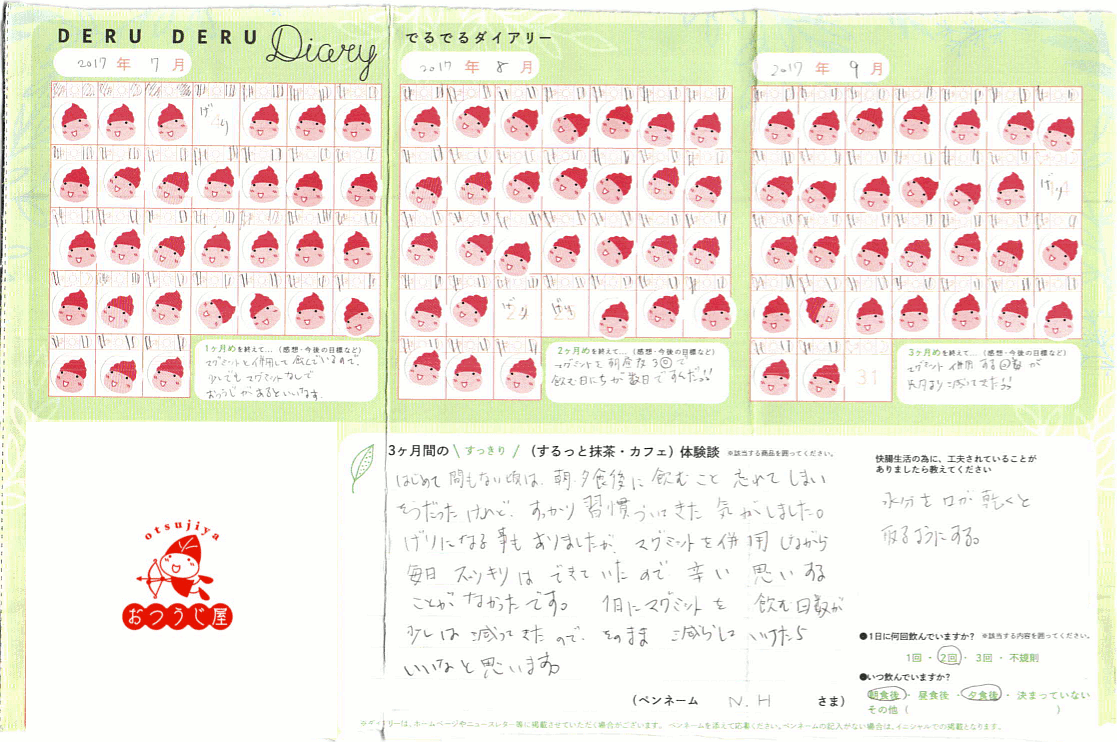 DERU DERU Diary でるでるダイアリー
2017年 7月
2017年 8月
2017年 9月
げり
げり
げり
げり
31
1ヶ月めを終えて…(感想・今後の目標など)
マグミットと併用して飲んでいるので、
少しでもマグミットなしで
おつうじがあるといいなます。
2ヶ月めを終えて…(感想・今後の目標など)
マグミットを朝昼夜3回で
飲む日にちが数日ですんだ!!
3ヶ月めを終えて…(感想・今後の目標など)
マグミット併用する回数が
先月より減ってきた!!
3ヶ月間の\すっきり/(するっと抹茶・カフェ)体験談 ※該当する商品を囲ってください。
はじめて間もない頃は、朝夕食後に飲むこと忘れてしまい
そうだったけれど、すっかり習慣づいてきた気がしました。
げりになる事もありましたが、マグミットを併用しながら
毎日スッキリはできていたので辛い思いする
ことがなかったです。1日にマグミットを飲む回数が
少しは減ってきたので、そのまま減らしていけたら
いいなと思います
(ペンネーム N.H さま)
快腸生活の為に、工夫されていることが
ありましたら教えてください
水分を口が乾くと
取るようにする。
●1日に何回飲んでいますか? ※該当する内容を囲ってください。
1回・2回・3回・不規則
●いつ飲んでいますか?
朝食後・昼食後・夕食後・決まっていない
その他( )
otsujiya
おつうじ屋
※ダイアリーは、ホームページやニュースレター等に掲載させていただく場合がございます。ペンネームを添えて応募ください。ペンネームの記入がない場合は、イニシャルでの掲載となります。